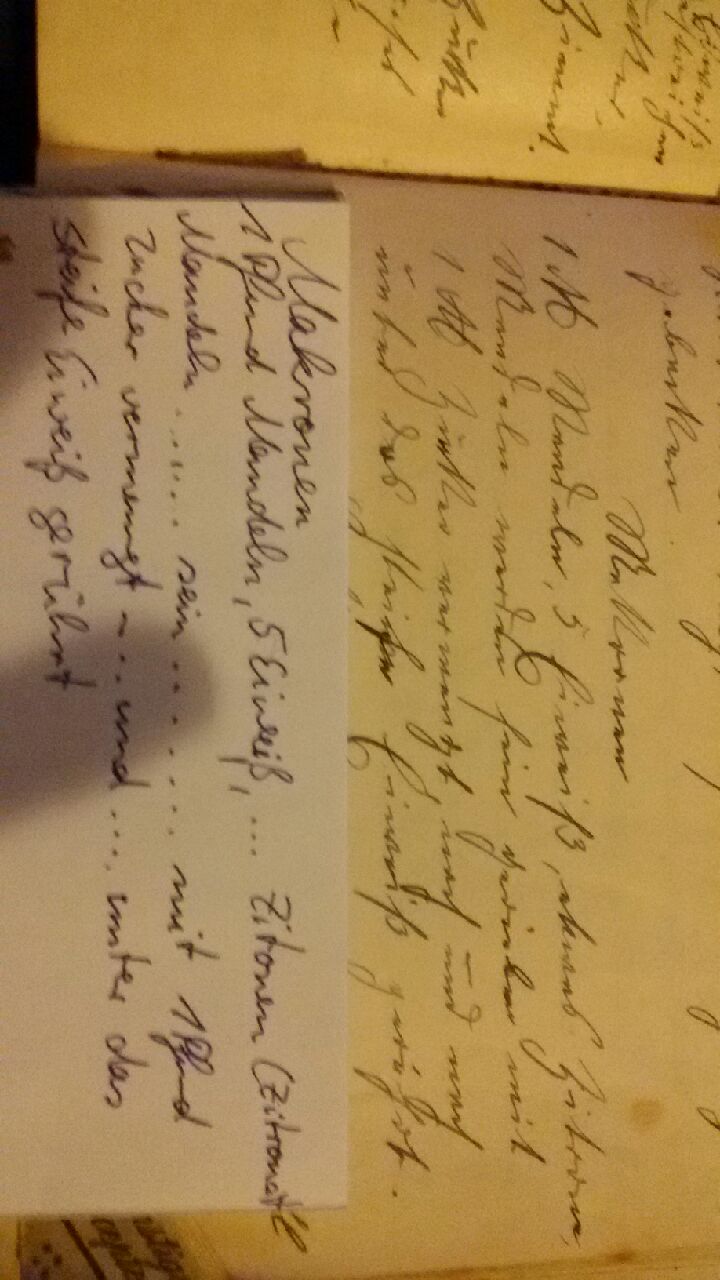 gebacken.
Makronen
1 ℔ Mandeln, 5 Eiweiß, etwas Zitrone,
Mandeln werden fein gerieben mit
1 ℔ Zucker vermengt, nach und nach
unter das steife Eiweiß gerührt.
Makronen
1 Pfund Mandeln, 5 Eiweiß, ... Zitronen (Zitronat?)
Mandeln ....... sein ....... mit 1 Pfund
Zucker vermengt ... und ..., unter das
steife Eiweiß gerührt